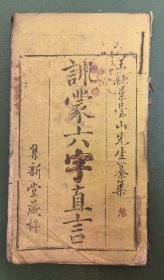 雲山先生纂集
訓蒙六字直言
集新堂藏梓